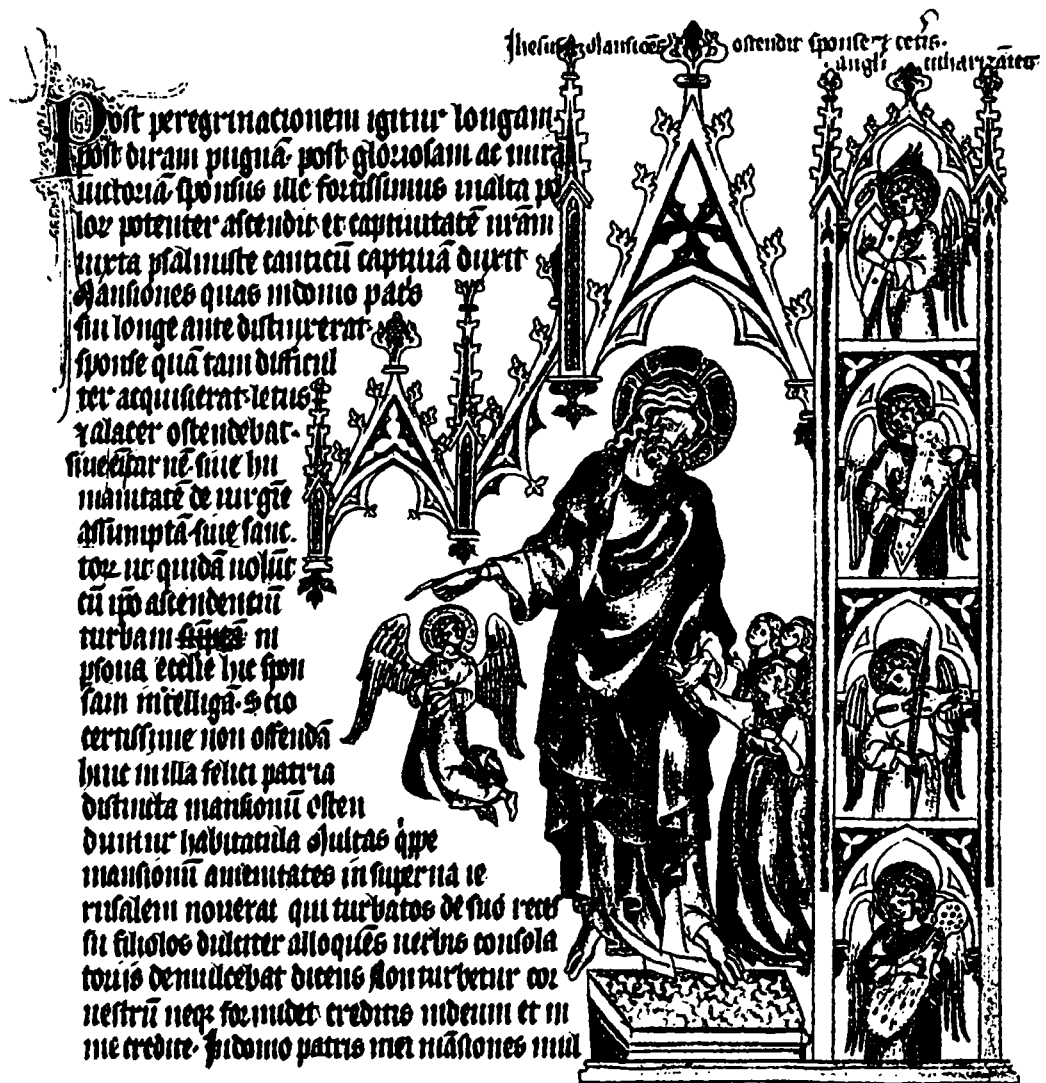 Ihesus Mansiōēs ostendit sponse ⁊ cetis
angli cithariʒātes
Post peregrinacionem igitur longam
post diram pugnā· post gloriosam ac mirā
uictoriā· sponsus ille fortissimus in alta po
loꝝ potenter ascendit· et captiuitatē nr̄am
iuxta psalmiste canticū captiuā duxit
Mansiones quas in domo patris
sui longe ante distinxerat·
sponse quā tam difficul
ter acquisierat· letus
⁊ alacer ostendebat·
siue hu
manitatē de uirgīe
assumptā· siue sanc
toꝝ ut quidā uolūt
cū ip̄o ascendentiū
turbam in
ꝑsona ecc̄lie hic spon
sam intelligā· Scio
certissime non offendā
hinc in illa felici patria
distincta mansionū osten
duntur habitacula Multas q̄ppe
mansionū amenitates in superna ie
rusalem nouerat qui turbatos de suo reces
su filiolos dulciter alloquēs uerbis consola
toriis demulcebat dicens Non turbetur cor
uestrū neqꝫ formidet· creditis in deum et in
me credite· In domo patris mei māsiones mul